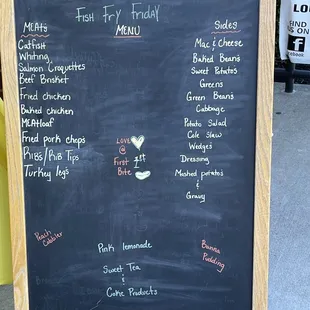 Fish Fry Friday
MENU
MEATS
Catfish
Whiting
Salmon Croquettes
Beef Brisket
Fried chicken
Baked chicken
MEATloaf
Fried pork chops
RIBS/RIB TIPS
Turkey legs
Sides
Mac & Cheese
Baked Beans
Sweet Potato's
Greens
Green Beans
Cabbage
Potato Salad
Cole Slaw
Wedges
Dressing
Mashed potato's
&
Gravy
LOVE
@
First 1st
Bite
Peach
Cobbler
Pink lemonade
Sweet Tea
&
Coke Products
Banna
Pudding
LO
f